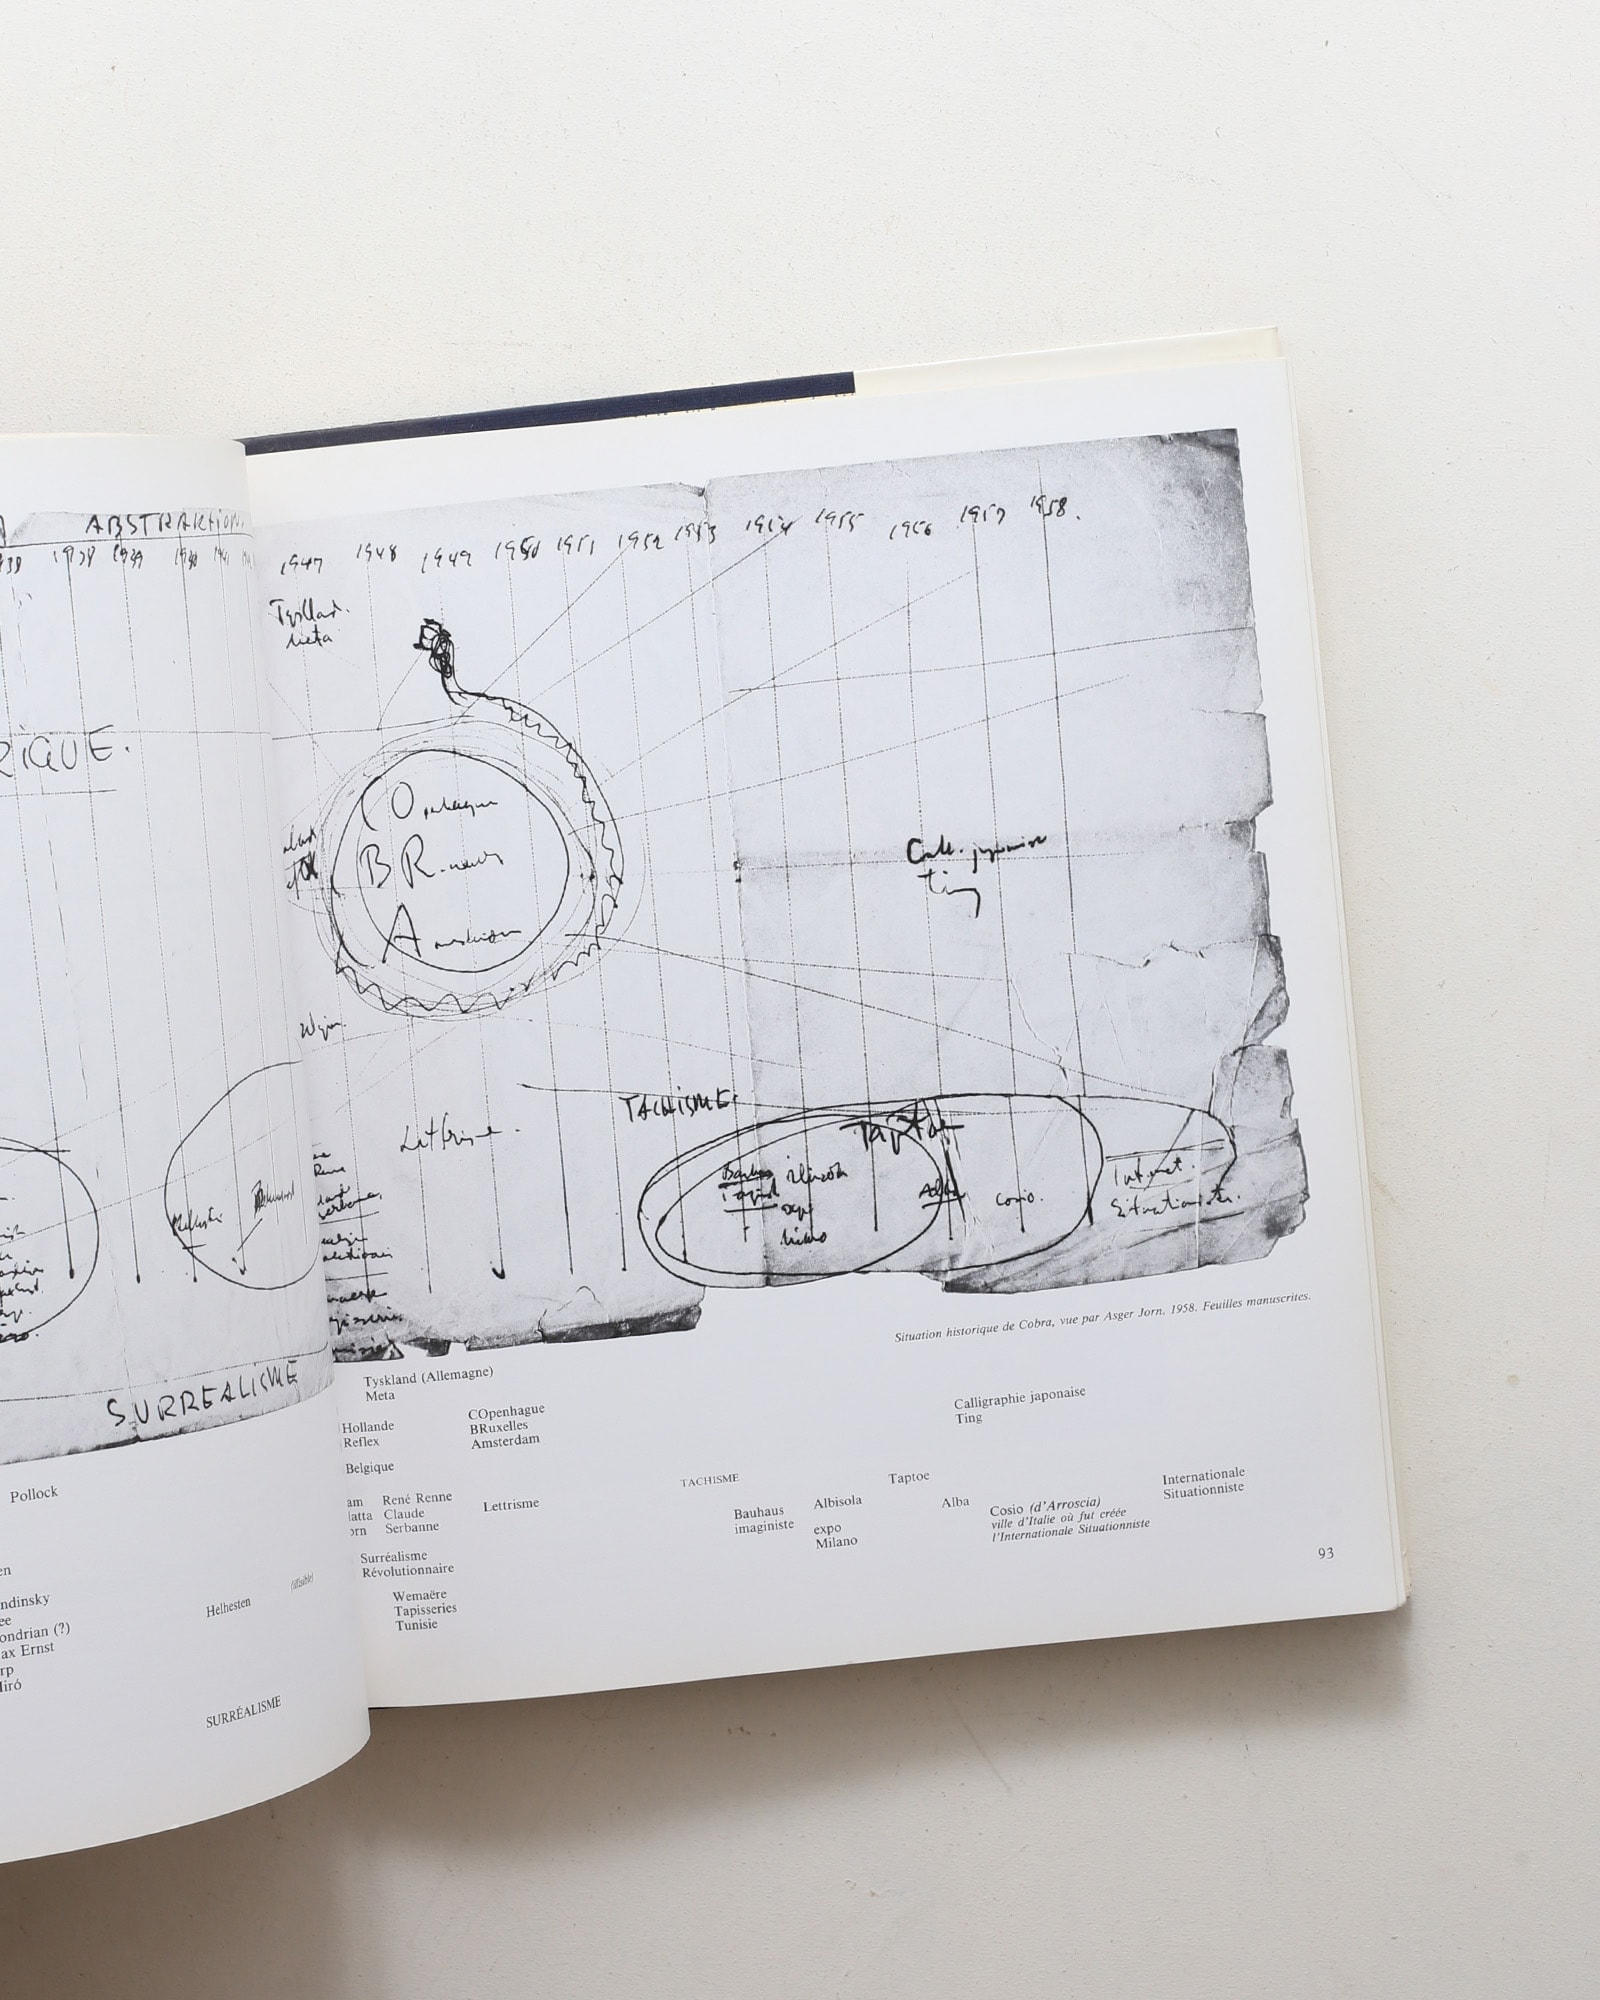 ABSTRAKtION.
1938 1939 1940 1941
RIQUE.
SURREALISME
Pollock
en
ndinsky
ee
ondrian (?)
ax Ernst
rp
liró
Helhesten
(illisible)
SURRÉALISME
1947 1948 1949 1950 1951 1952 1953 1954 1955 1956 1957 1958.
Tyskland.
Meta
COpenhague
BRuxelles
Amsterdam
Call. japonaise
Ting
Lettrisme.
TACHISME.
Taptoe
Bauhaus
Albisola
expo
Milano
Alba
Cosio.
Internat.
Situationiste.
Situation historique de Cobra, vue par Asger Jorn. 1958. Feuilles manuscrites.
Tyskland (Allemagne)
Meta
Hollande
Reflex
COpenhague
BRuxelles
Amsterdam
Calligraphie japonaise
Ting
Belgique
am
latta
orn
René Renne
Claude
Serbanne
Lettrisme
TACHISME
Bauhaus
imaginiste
Albisola
expo
Milano
Taptoe
Alba
Cosio (d'Arroscia)
ville d'Italie où fut créée
l'Internationale Situationniste
Internationale
Situationniste
Surréalisme
Révolutionnaire
Wemaëre
Tapisseries
Tunisie
93